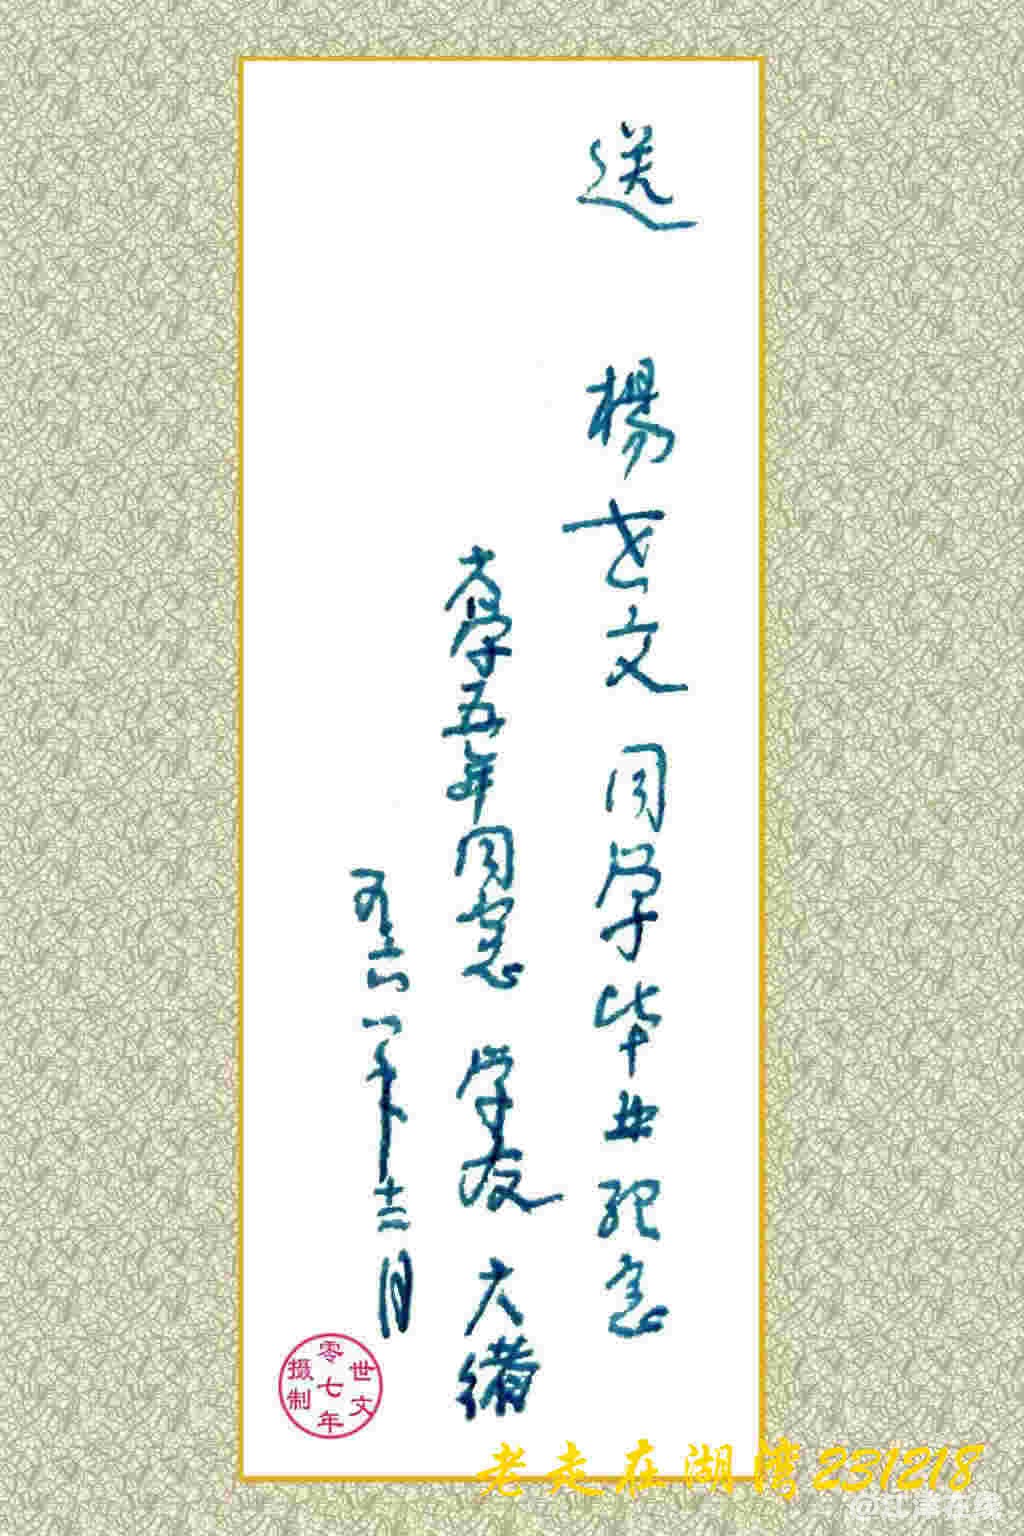 送 楊世文同学毕业纪念
大学五年同窓 学友 大
六一年十二月
世文
零七年
摄制
老走在湖湾231218